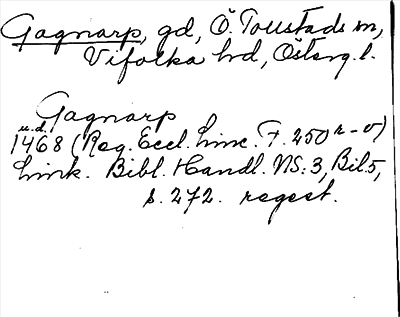 Gagnarp, gd, Ö. Tollstads sn,
Vifolka hd, Österg. l.
Gagnarp
u.d.
1468 (Reg. Eccl. Linc. F. 250 r-v)
Link. Bibl. Handl. NS: 3, Bil. 5,
s. 272. regest.